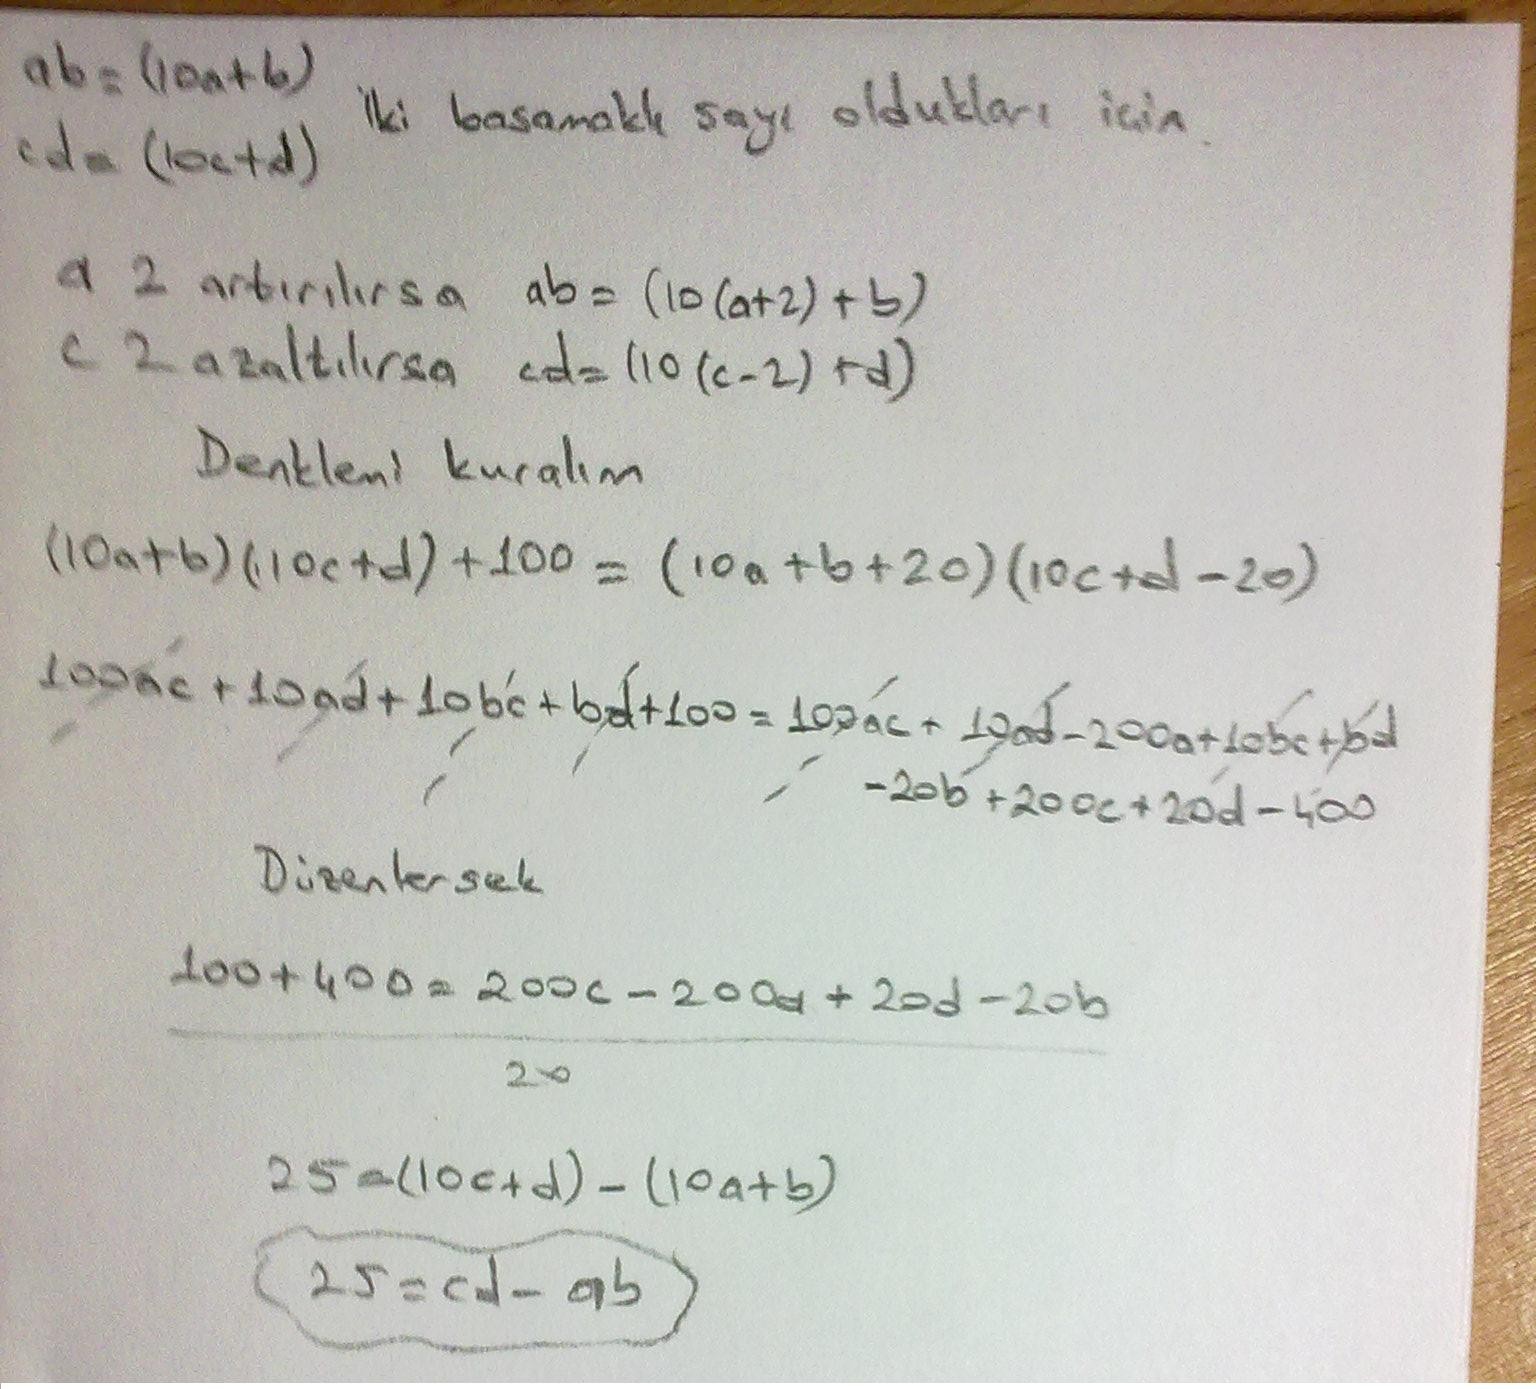 ab = (10a+b)
cd = (10c+d)
İki basamaklı sayı oldukları için.
a 2 artırılırsa ab = (10(a+2)+b)
c 2 azaltılırsa cd = (10(c-2)+d)
Denklemi kuralım
(10a+b)(10c+d)+100 = (10a+b+20)(10c+d-20)
100ac + 10ad + 10bc + bd + 100 = 100ac + 10ad - 200a + 10bc + bd
-20b + 200c + 20d - 400
Düzenlersek
100 + 400 = 200c - 200a + 20d - 20b
20
25 = (10c+d) - (10a+b)
25 = cd - ab